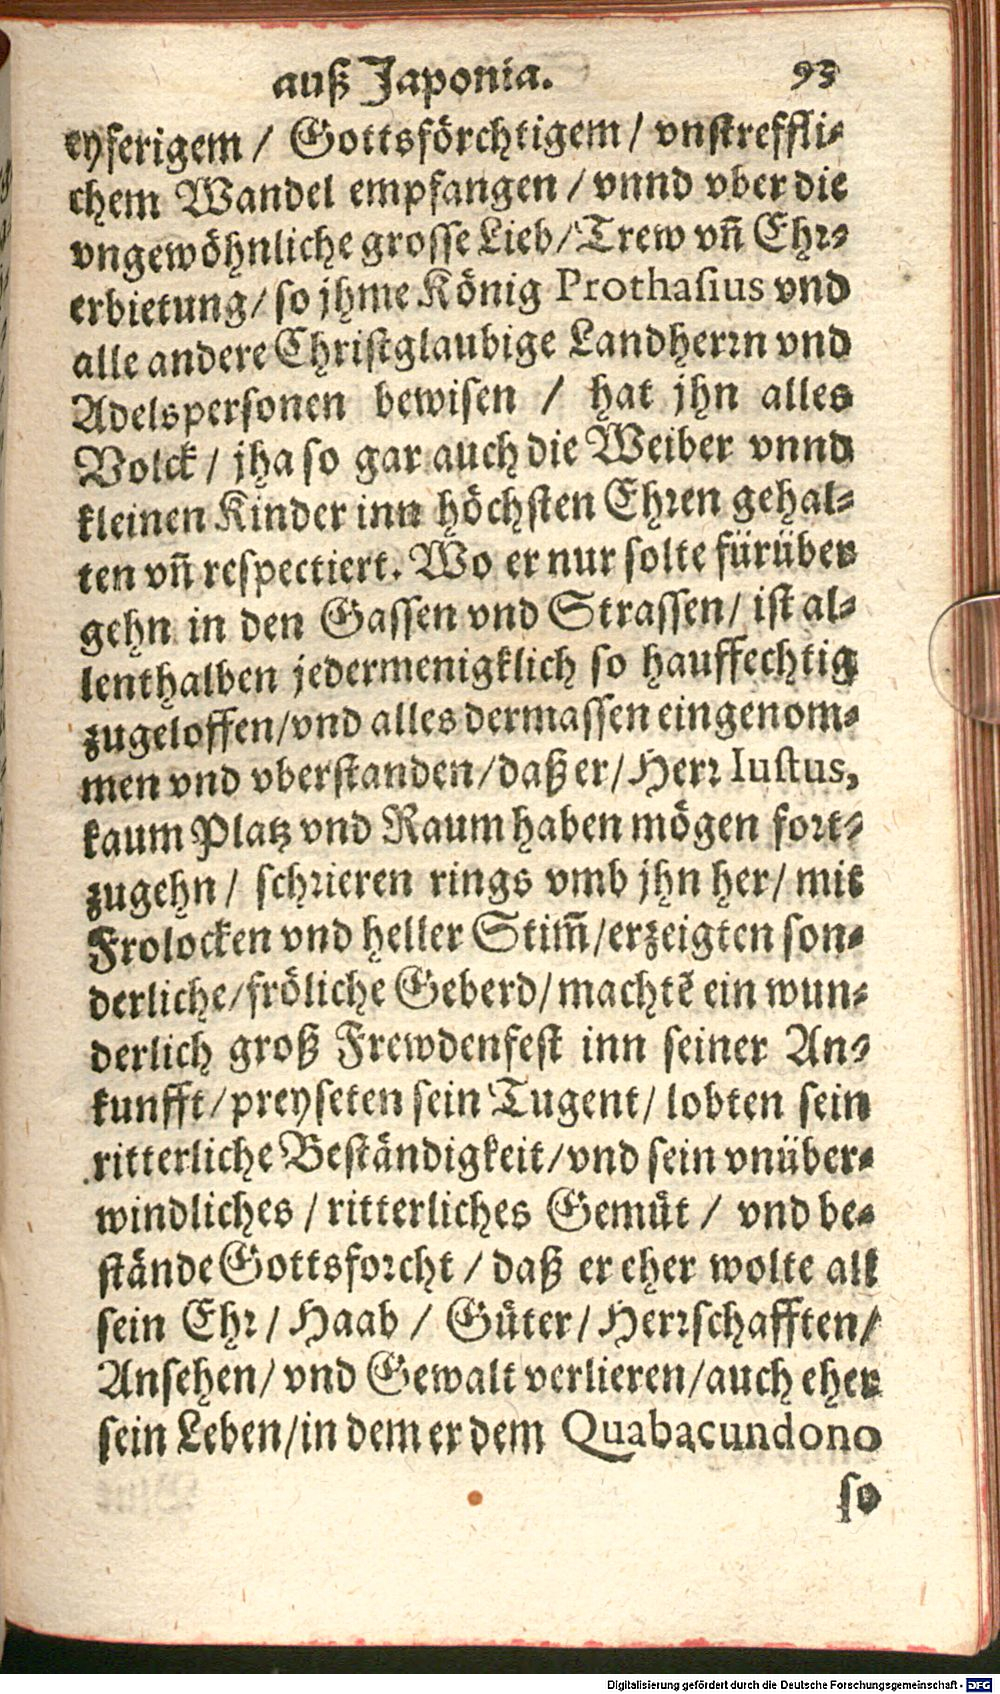 auß Japonia. 93
eyferigem / Gottsförchtigem / vnstreffli⸗
chem Wandel empfangen / vnnd vber die
vngewöhnliche grosse Lieb / Trew vñ Ehr⸗
erbietung / so jhme König Prothasius vnd
alle andere Christglaubige Landherrn vnd
Adelspersonen bewisen / hat jhn alles
Volck / jha so gar auch die Weiber vnnd
kleinen Kinder inn höchsten Ehren gehal⸗
ten vñ respectiert. Wo er nur solte fürüber
gehn in den Gassen vnd Strassen / ist al⸗
lenthalben jedermenigklich so hauffechtig
zugeloffen / vnd alles dermassen eingenom⸗
men vnd vberstanden / daß er / Herr Iustus,
kaum Platz vnd Raum haben mögen fort⸗
zugehn / schrieren rings vmb jhn her / mit
Frolocken vnd heller Stim̃ / erzeigten son⸗
derliche / fröliche Geberd / machtẽ ein wun⸗
derlich groß Frewdenfest inn seiner An⸗
kunfft / preyseten sein Tugent / lobten sein
ritterliche Beständigkeit / vnd sein vnüber⸗
windliches / ritterliches Gemüt / vnd be⸗
stände Gottsforcht / daß er eher wolte all
sein Ehr / Haab / Güter / Herrschafften /
Ansehen / vnd Gewalt verlieren / auch eher
sein Leben / in dem er dem Quabacundono
so
Digitalisierung gefördert durch die Deutsche Forschungsgemeinschaft - DFG